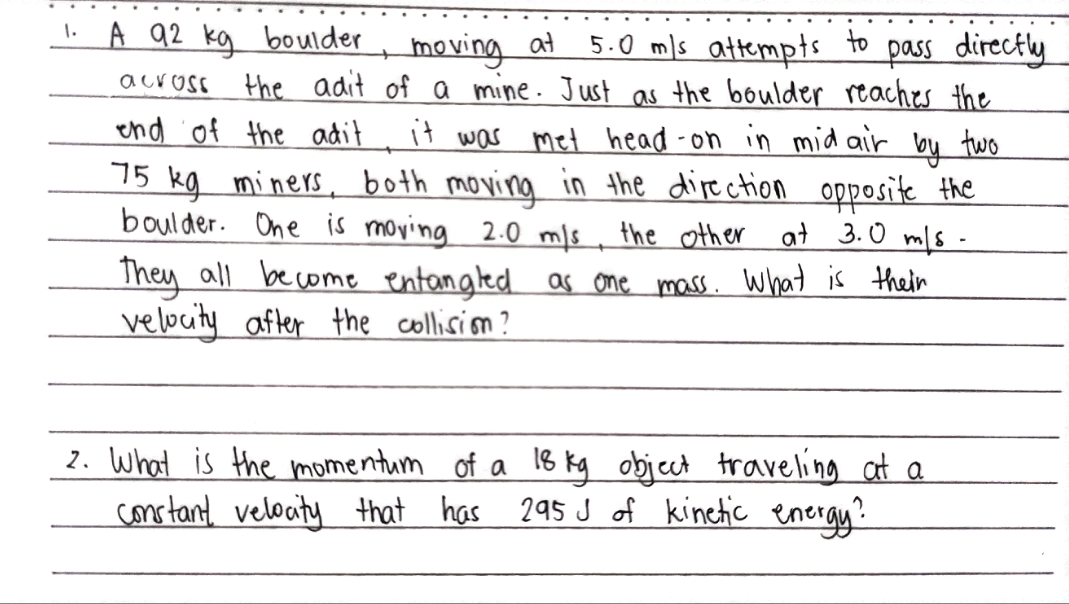 1. A 92 kg boulder, moving at 5.0 m/s attempts to pass directly
across the adit of a mine. Just as the boulder reaches the
end of the adit, it was met head-on in mid air by two
75 kg miners, both moving in the direction opposite the
boulder. One is moving 2.0 m/s, the other at 3.0 m/s.
They all become entangled as one mass. What is their
velocity after the collision?
2. What is the momentum of a 18 kg object traveling at a
constant velocity that has 295 J of kinetic energy?